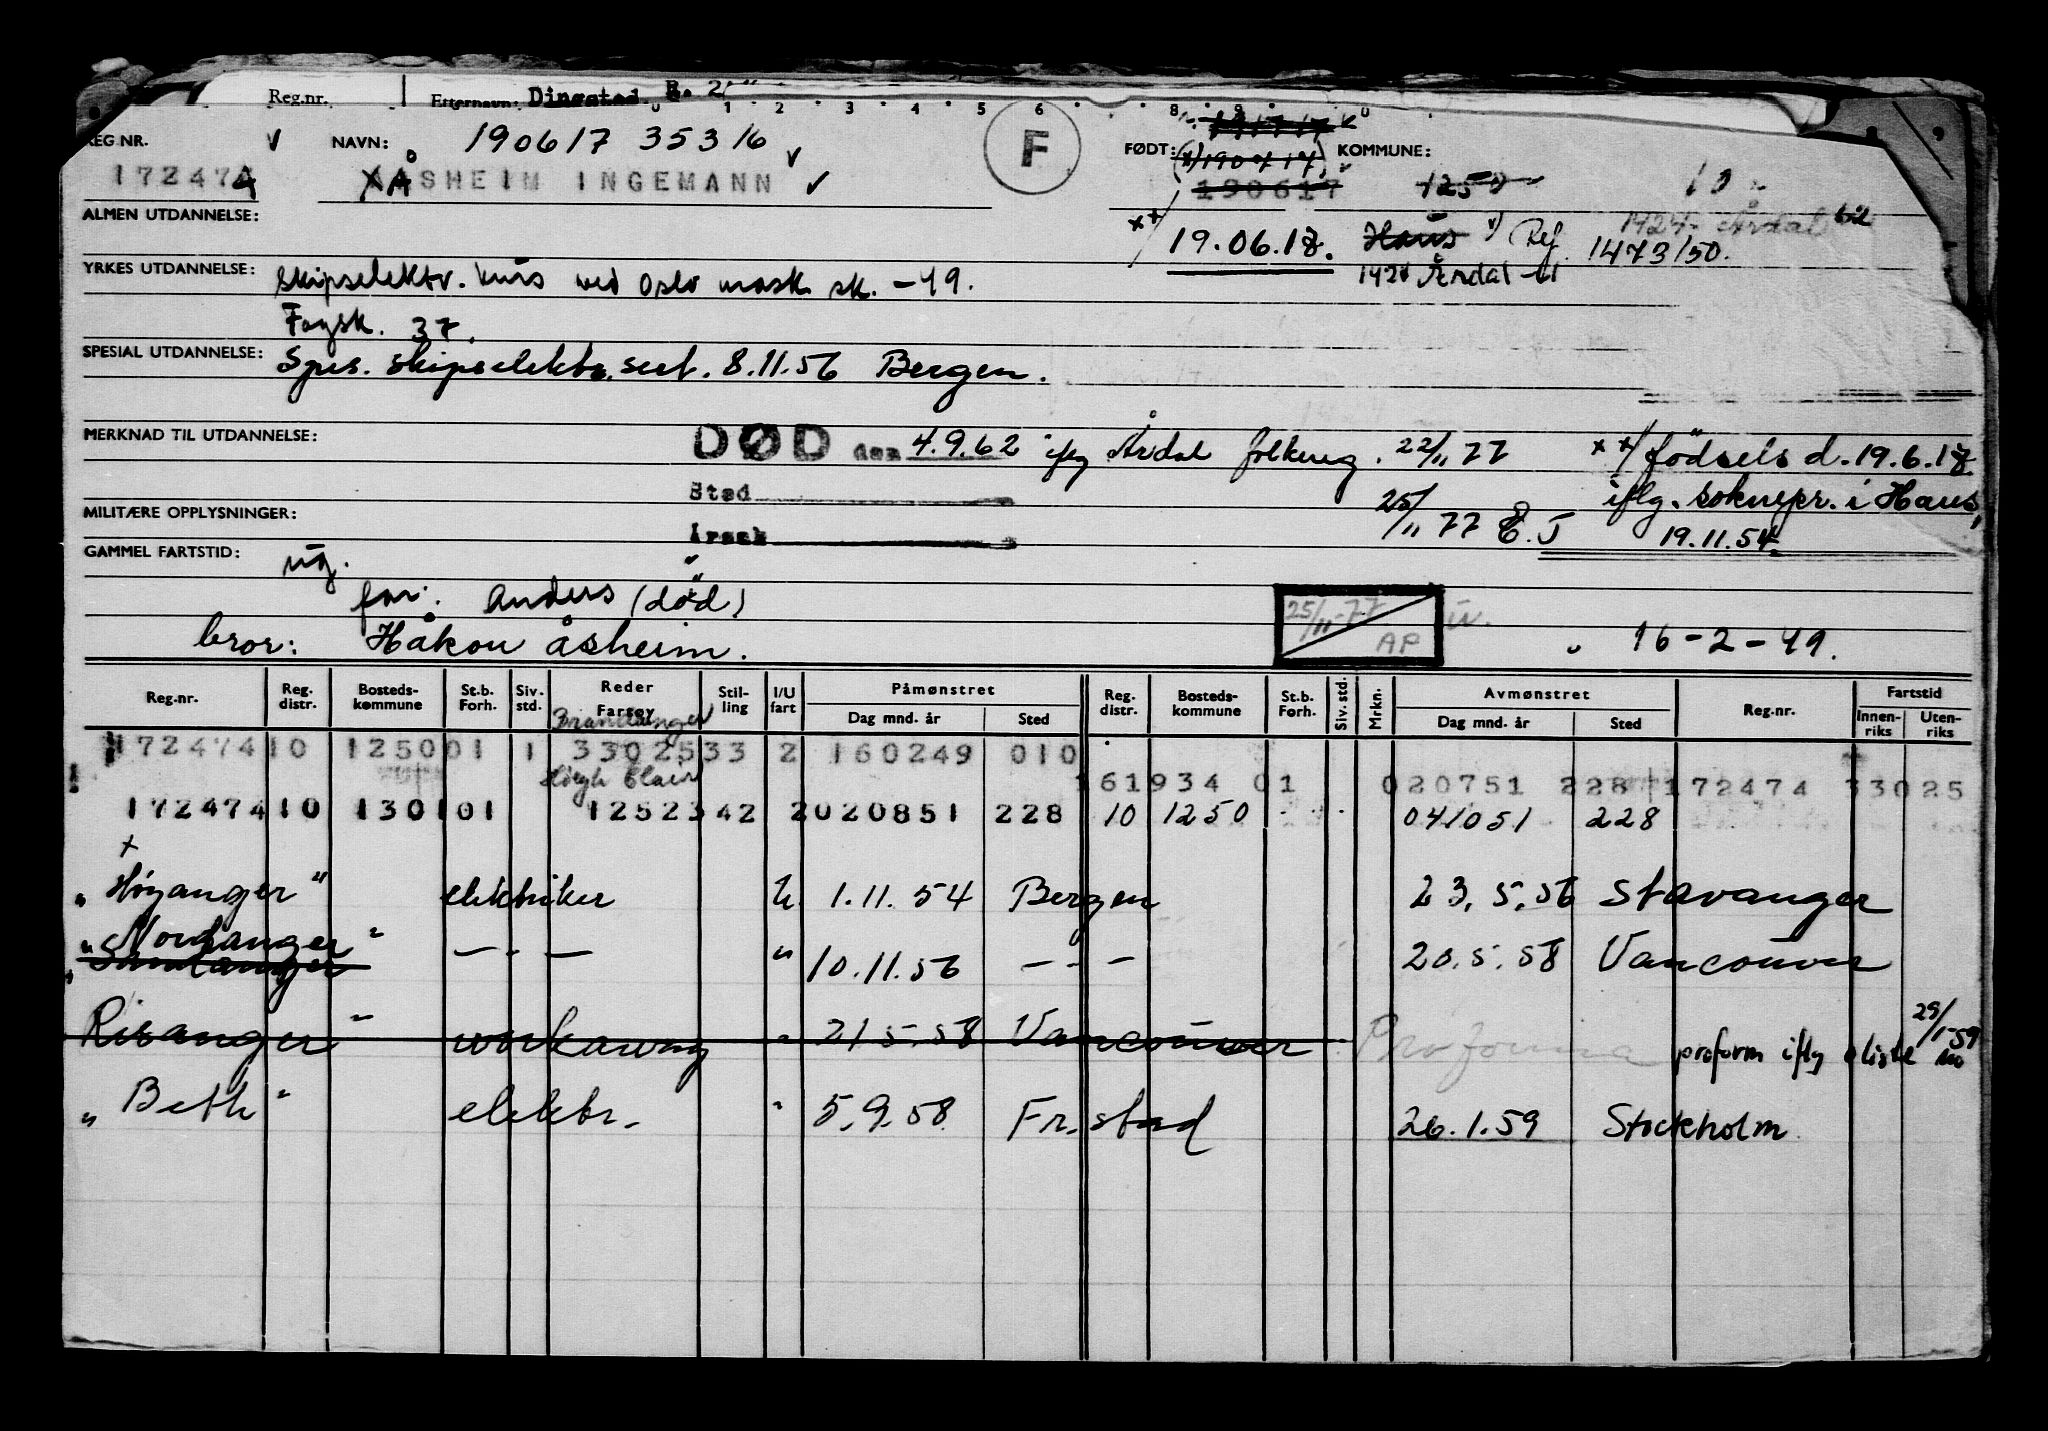 Reg.nr. Etternavn: Dingstad B. 2
0 1 2 3 4 5 6 8 9 0
REG NR. NAVN: 190617 35316 F FØDT: KOMMUNE:
172474 ÅSHEIM INGEMANN 190617 1250 10
ALMEN UTDANNELSE: 1424 Årdal 62
xx/ 19.06.17. Haus x) Ref. 1473/50.
YRKES UTDANNELSE: skipselektr. kurs ved Oslo mask. sk. -49. 1424 Årdal
Fagsk. 37.
SPESIAL UTDANNELSE: Spes. skipselektr. sert. 8.11.56 Bergen.
MERKNAD TIL UTDANNELSE: DØD den 4.9.62 iflg Årdal folkereg. 22/11 77 xx/ fødsels d. 19.6.17
Sted 25/11 77 E.J iflg. soknepr. i Haus,
MILITÆRE OPPLYSNINGER: Årsak 19.11.54.
GAMMEL FARTSTID: ug.
far: Anders (død) 25/11-77 AP
bror: Håkon Åsheim. 16-2-49.
Reg.nr. Reg. distr. Bosteds- kommune St.b. Forh. Siv. std. Reder Fartøy Stil- ling I/U fart Påmønstret Dag mnd. år Sted Reg. distr. Bosteds- kommune St.b. Forh. Siv. std. Mrkn. Avmønstret Dag mnd. år Sted Reg.nr. Fartstid Innen- riks Uten- riks
Brandanger
172474 10 1250 01 1 33025 33 2 160249 010
Høegh Clair 161934 01 020751 228 172474 33025
172474 10 1301 01 12523 42 2 020851 228 10 1250 041051 228
"Høyanger" elektriker U. 1.11.54 Bergen 23.5.56 Stavanger
"Nordanger" — . — " 10.11.56 — - — 20.5.58 Vancouver
"Samdanger"
Risanger" workaway " 21 5.58 Vancouver Proforma proform iflg liste 29/1-59
"Beth" elektr. " 5.9.58 Fr.stad 26.1.59 Stockholm